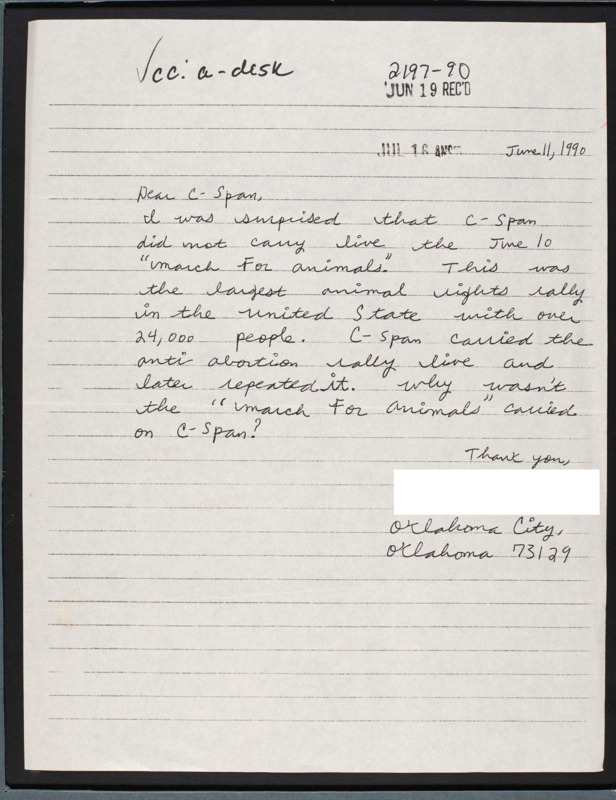 √cc: a-desk
2197-90
JUN 19 REC'D
June 11, 1990
Dear C-Span,
I was surprised that C-Span
did not carry live the June 10
"March For Animals." This was
the largest animal rights rally
in the United State with over
24,000 people. C-Span carried the
anti abortion rally live and
later repeated it. Why wasn't
the "March For Animals" carried
on C-Span?
Thank you,
Oklahoma City,
Oklahoma 73129